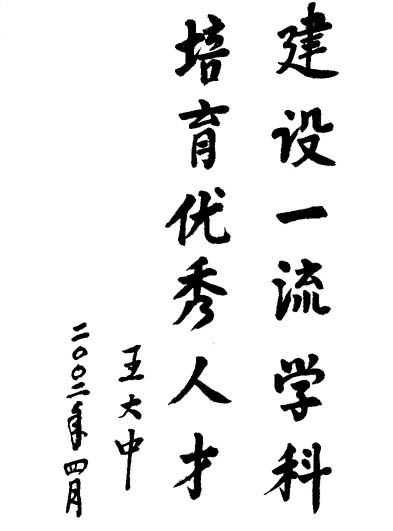 建设一流学科
培育优秀人才
王大中
二〇〇二年四月